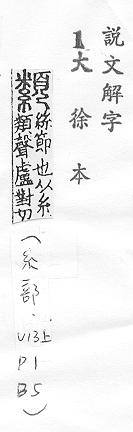 說文解字
1大徐本
纇 絲節也从糸
聲盧對切
(糸部.
V13上
P1
B5)